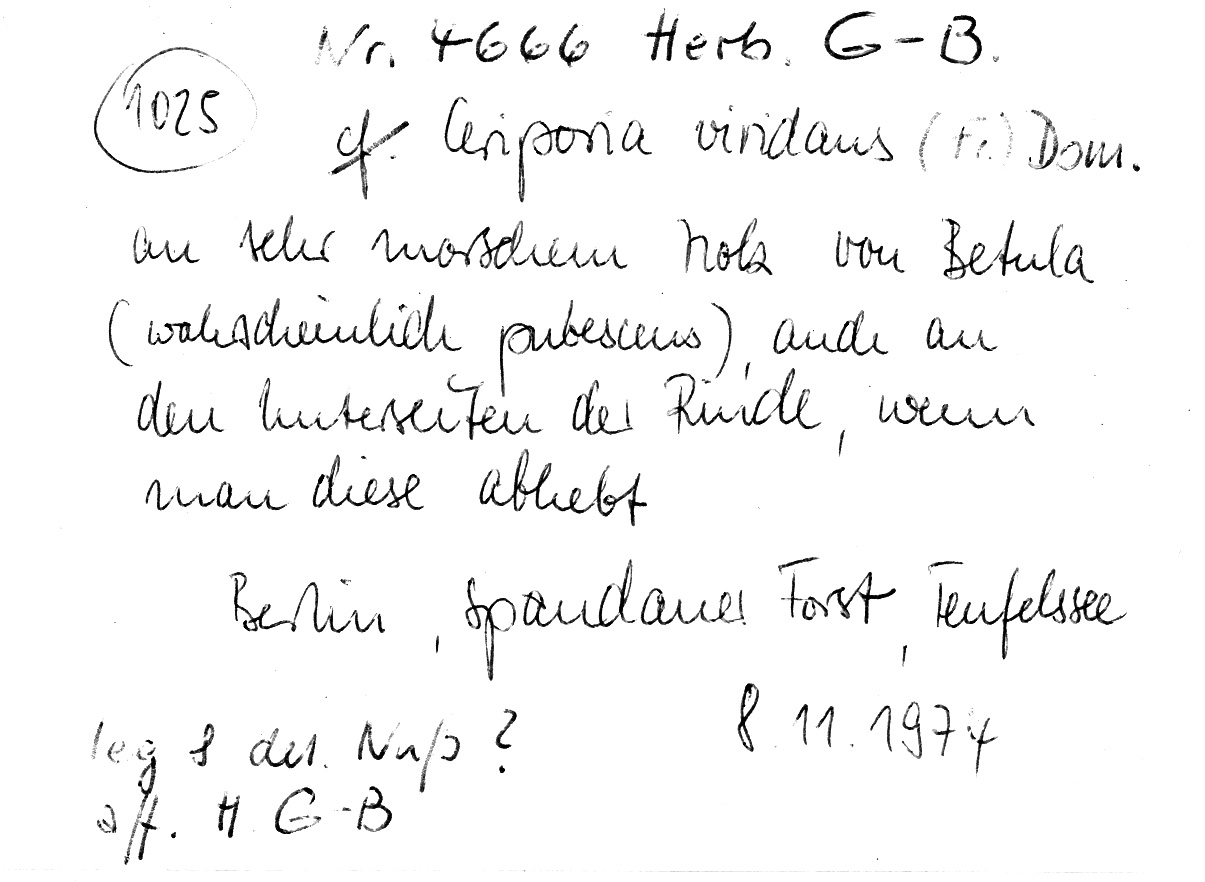 Nr. 4666 Herb. G-B.
1025
cf. Ceriporia viridans (Fr.) Dom.
an sehr morschem Holz von Betula
(wahrscheinlich pubescens), auch an
den Unterseiten der Rinde, wenn
man diese abhebt
Berlin, Spandauer Forst, Teufelssee
8.11.1974
leg & det. Nuß?
aff. H. G-B